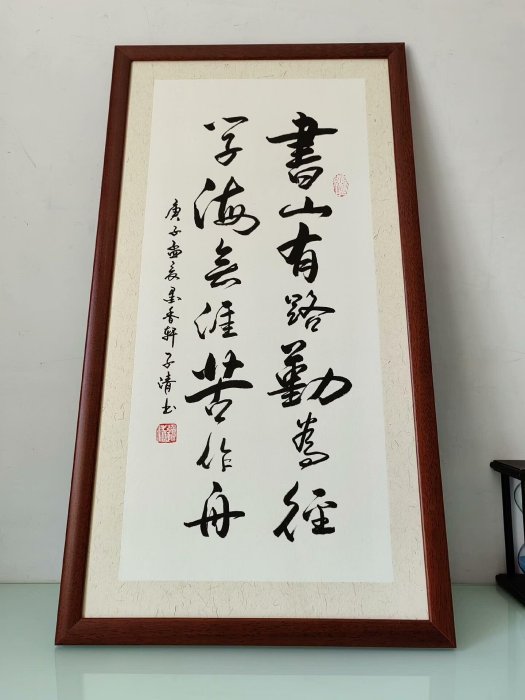 書山有路勤為徑
学海無涯苦作舟
庚子孟夏墨香軒子清书